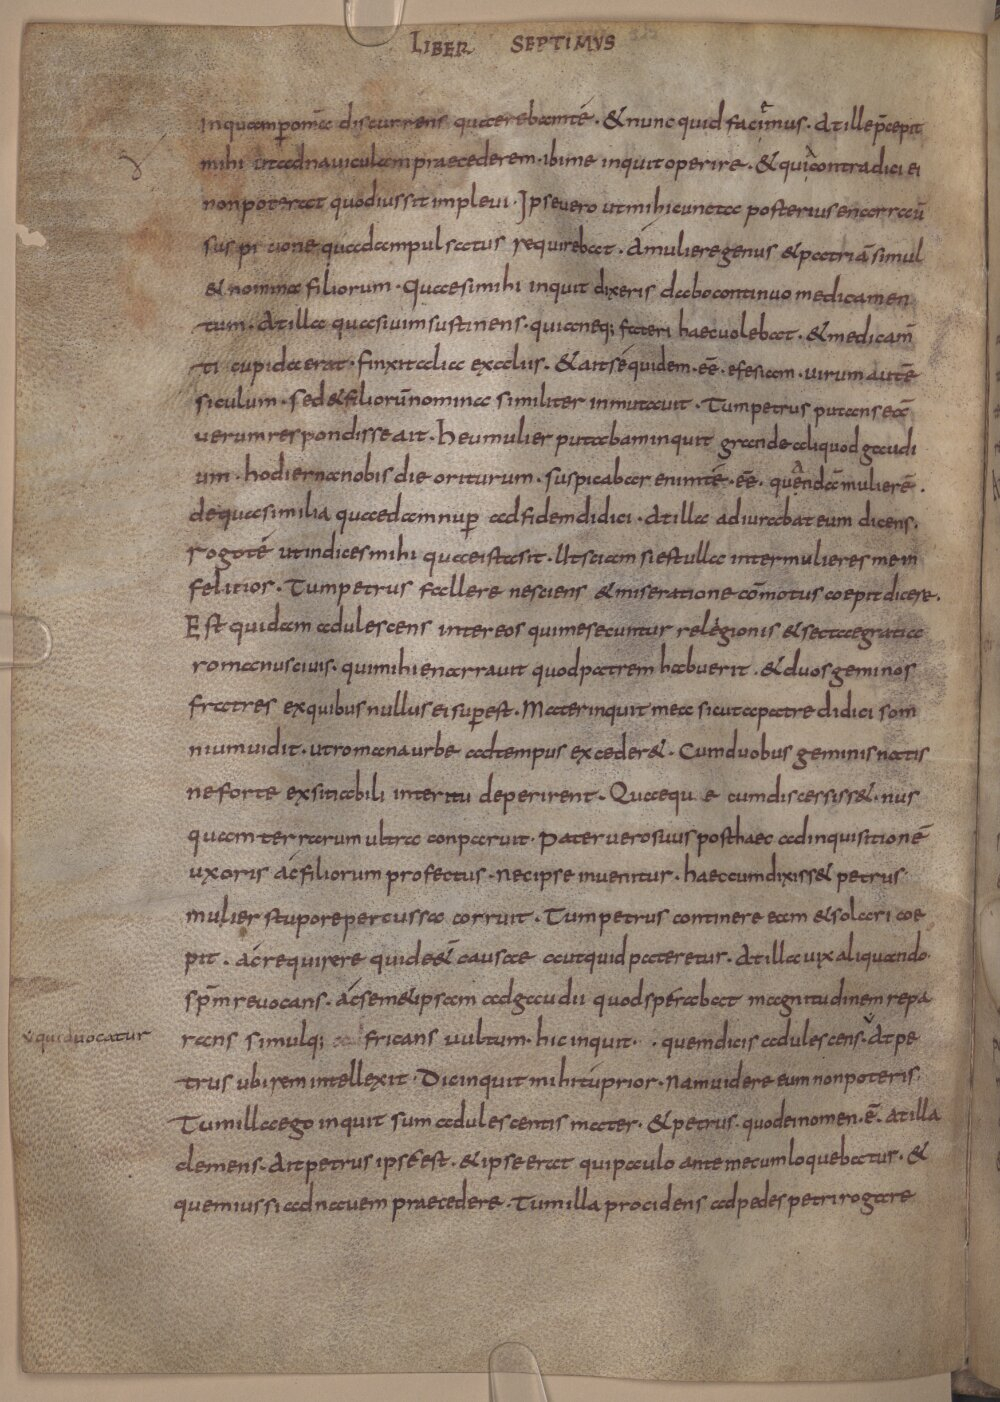 LIBER SEPTIMVS
inquam ꝑ omīa discurrens quaerebam té · & nunc quid faciemus · At ille p̄cepit
mihi ut ad nauiculam praecederem · ibi me inquit operire · & quia contradici ei
non poterat quod iussit impleui · Ipse uero ut mihi cuncta posterius enarrauū
suspicione quadam pulsatus requirebat · A muliere genus & patriā simul
& nomina filiorum · Quae si mihi inquit dixeris dabo continuo medicamen
tum · At illa quasi uim sustinens · quia neq; fateri haec uolebat · & medicam̄
ti cupida erat · finxit alia ex aliis · & ait sé quidem · eē · efesiam · uirum autē
siculum · sed & filiorū nomina similiter inmutauit · Tum petrus putans eā
uerum respondisse ait · Heu mulier putabam inquit grande aliquod gaudi
um · hodierna nobis die oriturum · suspicabar enim té · eē · quendā mulierē ·
de qua similia quaedam nuꝑ ad fidem didici · At illa adiurabat eum dicens ·
rogo té ut indices mihi quae ista sit · Ut sciam si est ulla inter mulieres me in
felitior · Tum petrus fallere nesciens & miseratione cōmotus coepit dicere ·
Est quidam adulescens inter eos qui me secuntur relegionis & sectae gratia
romanus ciuis · qui mihi enarrauit quod patrem habuerit · & duos geminos
fratres ex quibus nullus ei suꝑest · Mater inquit mea sicut a patre didici som
nium uidit · ut romana urbe ad tempus exceder& · Cum duobus geminis natis
ne forte exsitiabili interitu deperirent · Quae qu e cum discessiss& · nus
quam terrarum ultra conparuit · Pater uero suus post haec ad inquisitionē
uxoris ác filiorum profectus · nec ipse inuenitur · haec cum dixiss& petrus
mulier stupore percussa corruit · Tum petrus continere eam & solari coe
pit · ác requirere quid e&̄ causae aut quid pateretur · At illa uix aliquando
sp̄m reuocans · ác semetipsam ad gaudii quod sperabat magnitudinem repa
rans simulq; fricans uultum · hic inquit · · quem dicis adulescens · At pe
v qui d uocatur
trus ubi rem intellexit · Dic inquit mihi tú prior · nam uidere eum non poteris
Tum illa ego inquit sum adulescentis mater · & petrus · quod ei nomen · ē · at illa
clemens · Ait petrus ipsé est · & ipse erat qui paulo ante mecum loquebatur · &
quem iussi ad nauem praecedere · Tum illa procidens ad pedes petri rogare